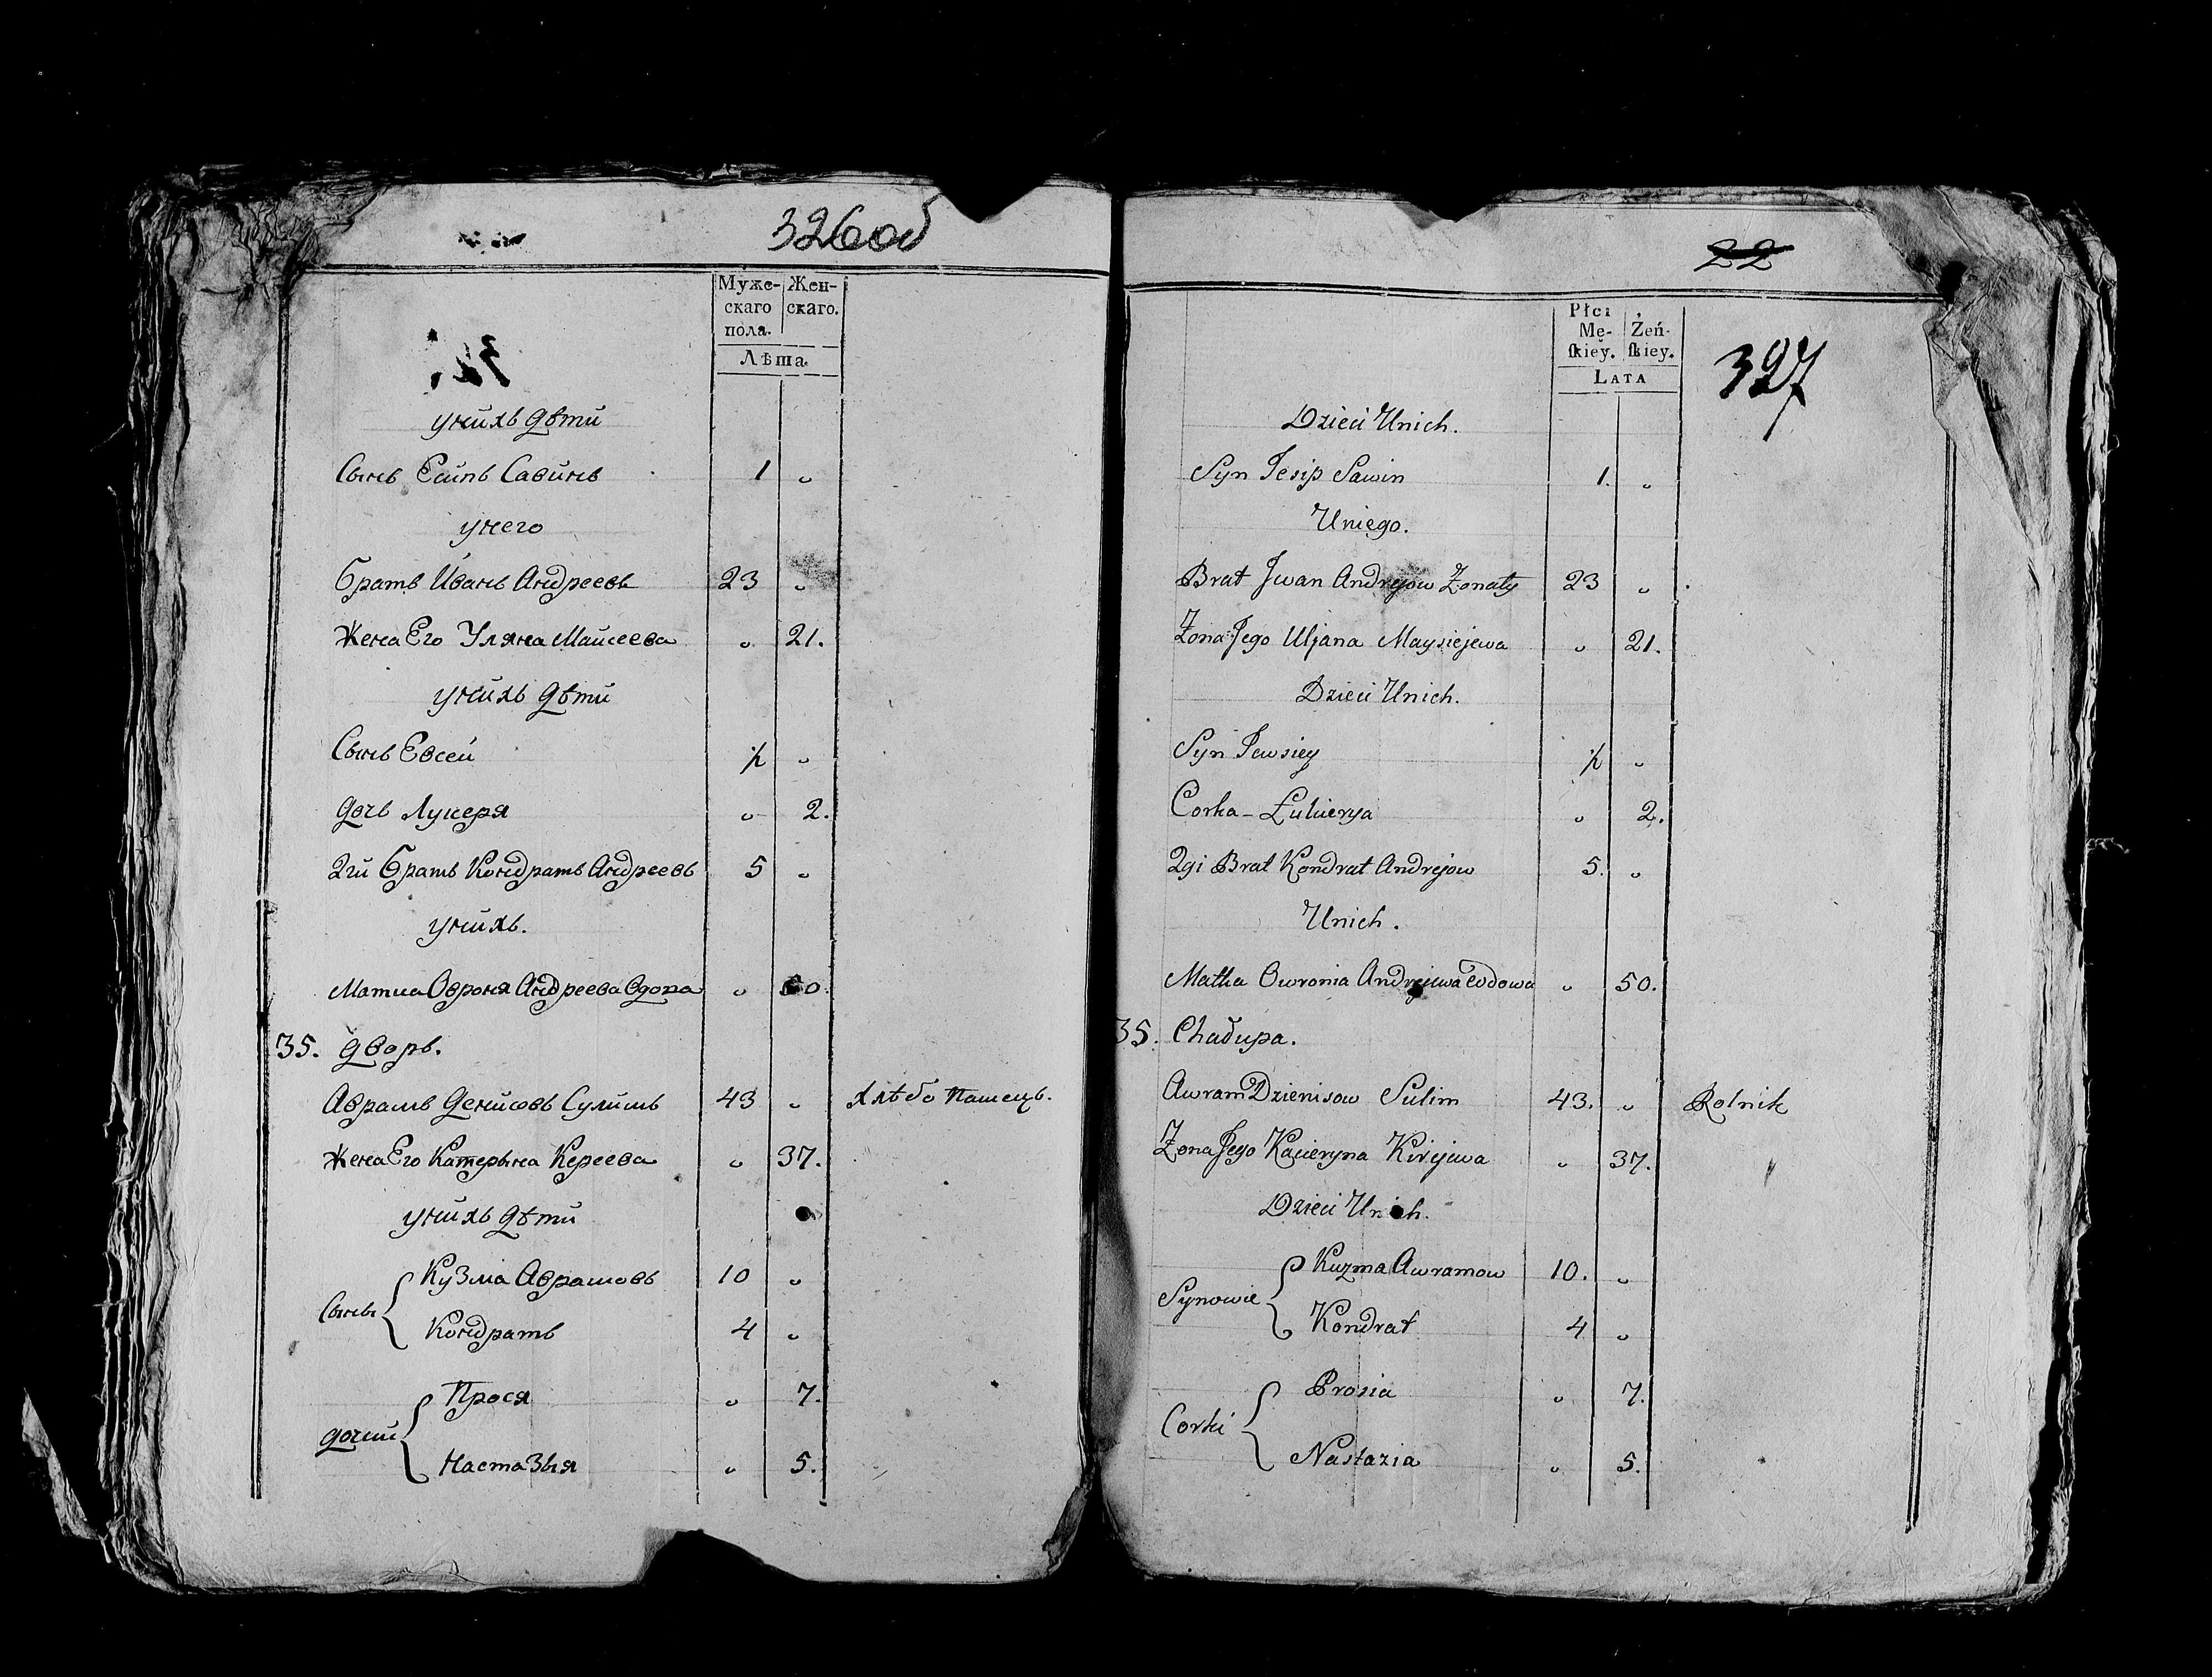 326об
Муже-
скаго
пола.
Жен-
скаго.
Лѣта.
унихъ дѣти
Сынъ Есипъ Савинъ 1 „
унего
братъ Иванъ Андреевъ 23 „
Жена Его Уляна Майсеева „ 21.
унихъ дѣти
Сынъ Евсей ½ „
дочь Лукеря „ 2.
2й братъ Кондратъ Андреевъ 5 „
унихъ.
Матка Овроня Андреева вдова „ 50.
35. дворъ.
Аврамъ Денисовъ Сулимъ 43 „ хлѣбо пашецъ.
Жена Его Катерына Кереева „ 37.
унихъ дѣти
Сыны { Кузма Аврамовъ 10 „
Кондратъ 4 „
дочки { Прося „ 7.
Настазыя „ 5.
22
Płci
Mę-
ſkiey.
Żeń-
ſkiey.
LATA
327
Dzieci Unich.
Syn Jesip Sawin 1. „
Uniego.
Brat Jwan Andrejow Zonaty 23 „
Zona Jego Uljana Maysiejewa „ 21.
Dzieci Unich.
Syn Jewsiey ½ „
Corka - Łukierya „ 2.
2gi Brat Kondrat Andrejow 5. „
Unich.
Matka Owronia Andrejewa wdowa „ 50.
35. Chałupa.
Awram Dzienisow Sulim 43. „ Rolnik
Zona Jego Kacieryna Kirejewa „ 37.
Dzieci Unich.
Synowie { Kuzma Awramow 10. „
Kondrat 4 „
Corki { Prosia „ 7.
Nastazia „ 5.